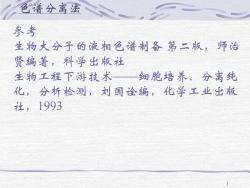 色谱分离法
参考
生物大分子的液相色谱制备 第二版，师治
贤编著，科学出版社
生物工程下游技术——细胞培养、分离纯
化，分析检测，刘国诠编，化学工业出版
社，1993
1